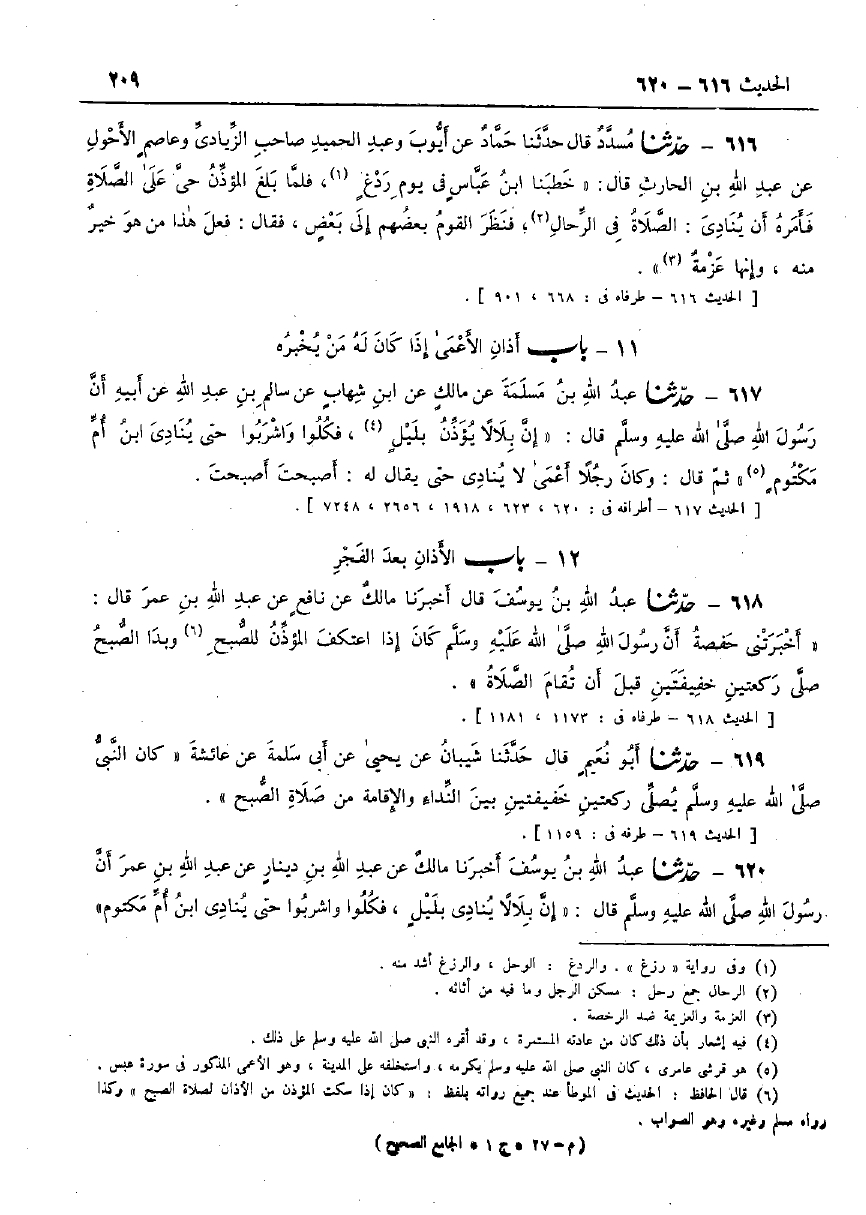 الحديث ٦١٦ – ٦٢٠
٢٠٩
٦١٦ – حدّثنا مُسدَّدٌ قال حدَّثَنا حَمَّادٌ عن أيُّوبَ وعبدِ الحميدِ صاحبِ الزِّيادىِّ وعاصمٍ الأَحْولِ
عن عبدِ اللهِ بنِ الحارثِ قال: « خَطبَنا ابنُ عَبَّاسٍ فى يومٍ رَدْغٍ (١)، فلمَّا بَلغَ المؤذِّنُ حىَّ عَلَىٰ الصَّلَاةِ
فَأَمَرَهُ أن يُنَادِىَ : الصَّلَاةُ فى الرِّحالِ(٢)؛ فنَظَرَ القومُ بعضُهم إلَى بَعْضٍ ، فقال : فعلَ هٰذا من هوَ خيرٌ
منه ، وإنها عَزْمةٌ (٣)» .
[ الحديث ٦١٦ – طرفاه فى : ٦٦٨ ، ٩٠١ ] .
١١ – باب أذانِ الأَعْمَىٰ إذَا كَانَ لَهُ مَنْ يُخْبرُه
٦١٧ – حدّثنا عبدُ اللهِ بنُ مَسلَمَةَ عن مالكٍ عن ابنِ شِهابٍ عن سالمِ بنِ عبدِ اللهِ عن أبيهِ أنَّ
رَسُولَ اللهِ صلَّىٰ الله عليهِ وسلَّم قال : « إنَّ بِلَالًا يُؤَذِّنُ بلَيْلٍ (٤) ، فكُلُوا وَاشْرَبُوا حتى يُنَادِىَ ابنُ أُمِّ
مَكْتُومٍ(٥)» ثمّ قال : وكانَ رجُلًا أعْمَىٰ لا يُنادِى حتى يقال له : أصبحتَ أصبحتَ .
[ الحديث ٦١٧ – أطرافه فى : ٦٢٠ ، ٦٢٣ ، ١٩١٨ ، ٢٦٥٦ ، ٧٢٤٨ ] .
١٢ – باب الأَذانِ بعدَ الفَجْرِ
٦١٨ – حدّثنا عبدُ اللهِ بنُ يوسُفَ قال أخبرَنا مالكٌ عن نافعٍ عن عبدِ اللهِ بنِ عمرَ قال :
« أَخْبَرَتْنى حَفصةُ أنَّ رسُولَ اللهِ صلَّىٰ الله عَلَيْهِ وسَلَّم كَانَ إذا اعتكفَ المؤذِّنُ للصُّبحِ (٦) وبدَا الصُّبحُ
صلَّى رَكعتينِ خفِيفَتَينِ قبلَ أن تُقامَ الصَّلَاةُ » .
[ الحديث ٦١٨ – طرفاه فى : ١١٧٣ ، ١١٨١ ] .
٦١٩ – حدّثنا أبُو نُعَيمٍ قال حَدَّثَنا شَيبانُ عن يحيىٰ عن أبى سَلمةَ عن عائشةَ « كان النَّبىُّ
صلَّىٰ الله عليهِ وسلَّم يُصلِّى ركعتينِ خَفيفتينِ بينَ النِّداءِ والإقامة من صَلَاةِ الصُّبح » .
[ الحديث ٦١٩ – طرفه فى : ١١٥٩ ] .
٦٢٠ – حدّثنا عبدُ اللهِ بنُ يوسُفَ أخبرَنا مالكٌ عن عبدِ اللهِ بنِ دينارٍ عن عبدِ اللهِ بنِ عمرَ أنَّ
رسُولَ اللهِ صلَّى الله عليهِ وسلَّم قال : « إنَّ بِلَالًا يُنَادِى بلَيْلٍ ، فكُلُوا واشربُوا حتى يُنادِى ابنُ أُمِّ مَكتوم»
(١) وفى رواية « رزغ » . والردغ : الوحل ، والرزغ أشد منه .
(٢) الرحال جمع رحل : مسكن الرجل وما فيه من أثاثه .
(٣) العزمة والعزيمة ضد الرخصة .
(٤) فيه إشعار بأن ذلك كان من عادته المستمرة ، وقد أقره النبى صلى الله عليه وسلم على ذلك .
(٥) هو قرشى عامرى ، كان النبى صلى الله عليه وسلم يكرمه ، واستخلفه على المدينة ، وهو الأعمى المذكور فى سورة عبس .
(٦) قال الحافظ : الحديث فى الموطأ عند جميع رواته بلفظ : «كان إذا سكت المؤذن من الأذان لصلاة الصبح » وكذا
رواه مسلم وغيره وهو الصواب .
(م – ٢٧ * ج ١ * الجامع الصحيح)